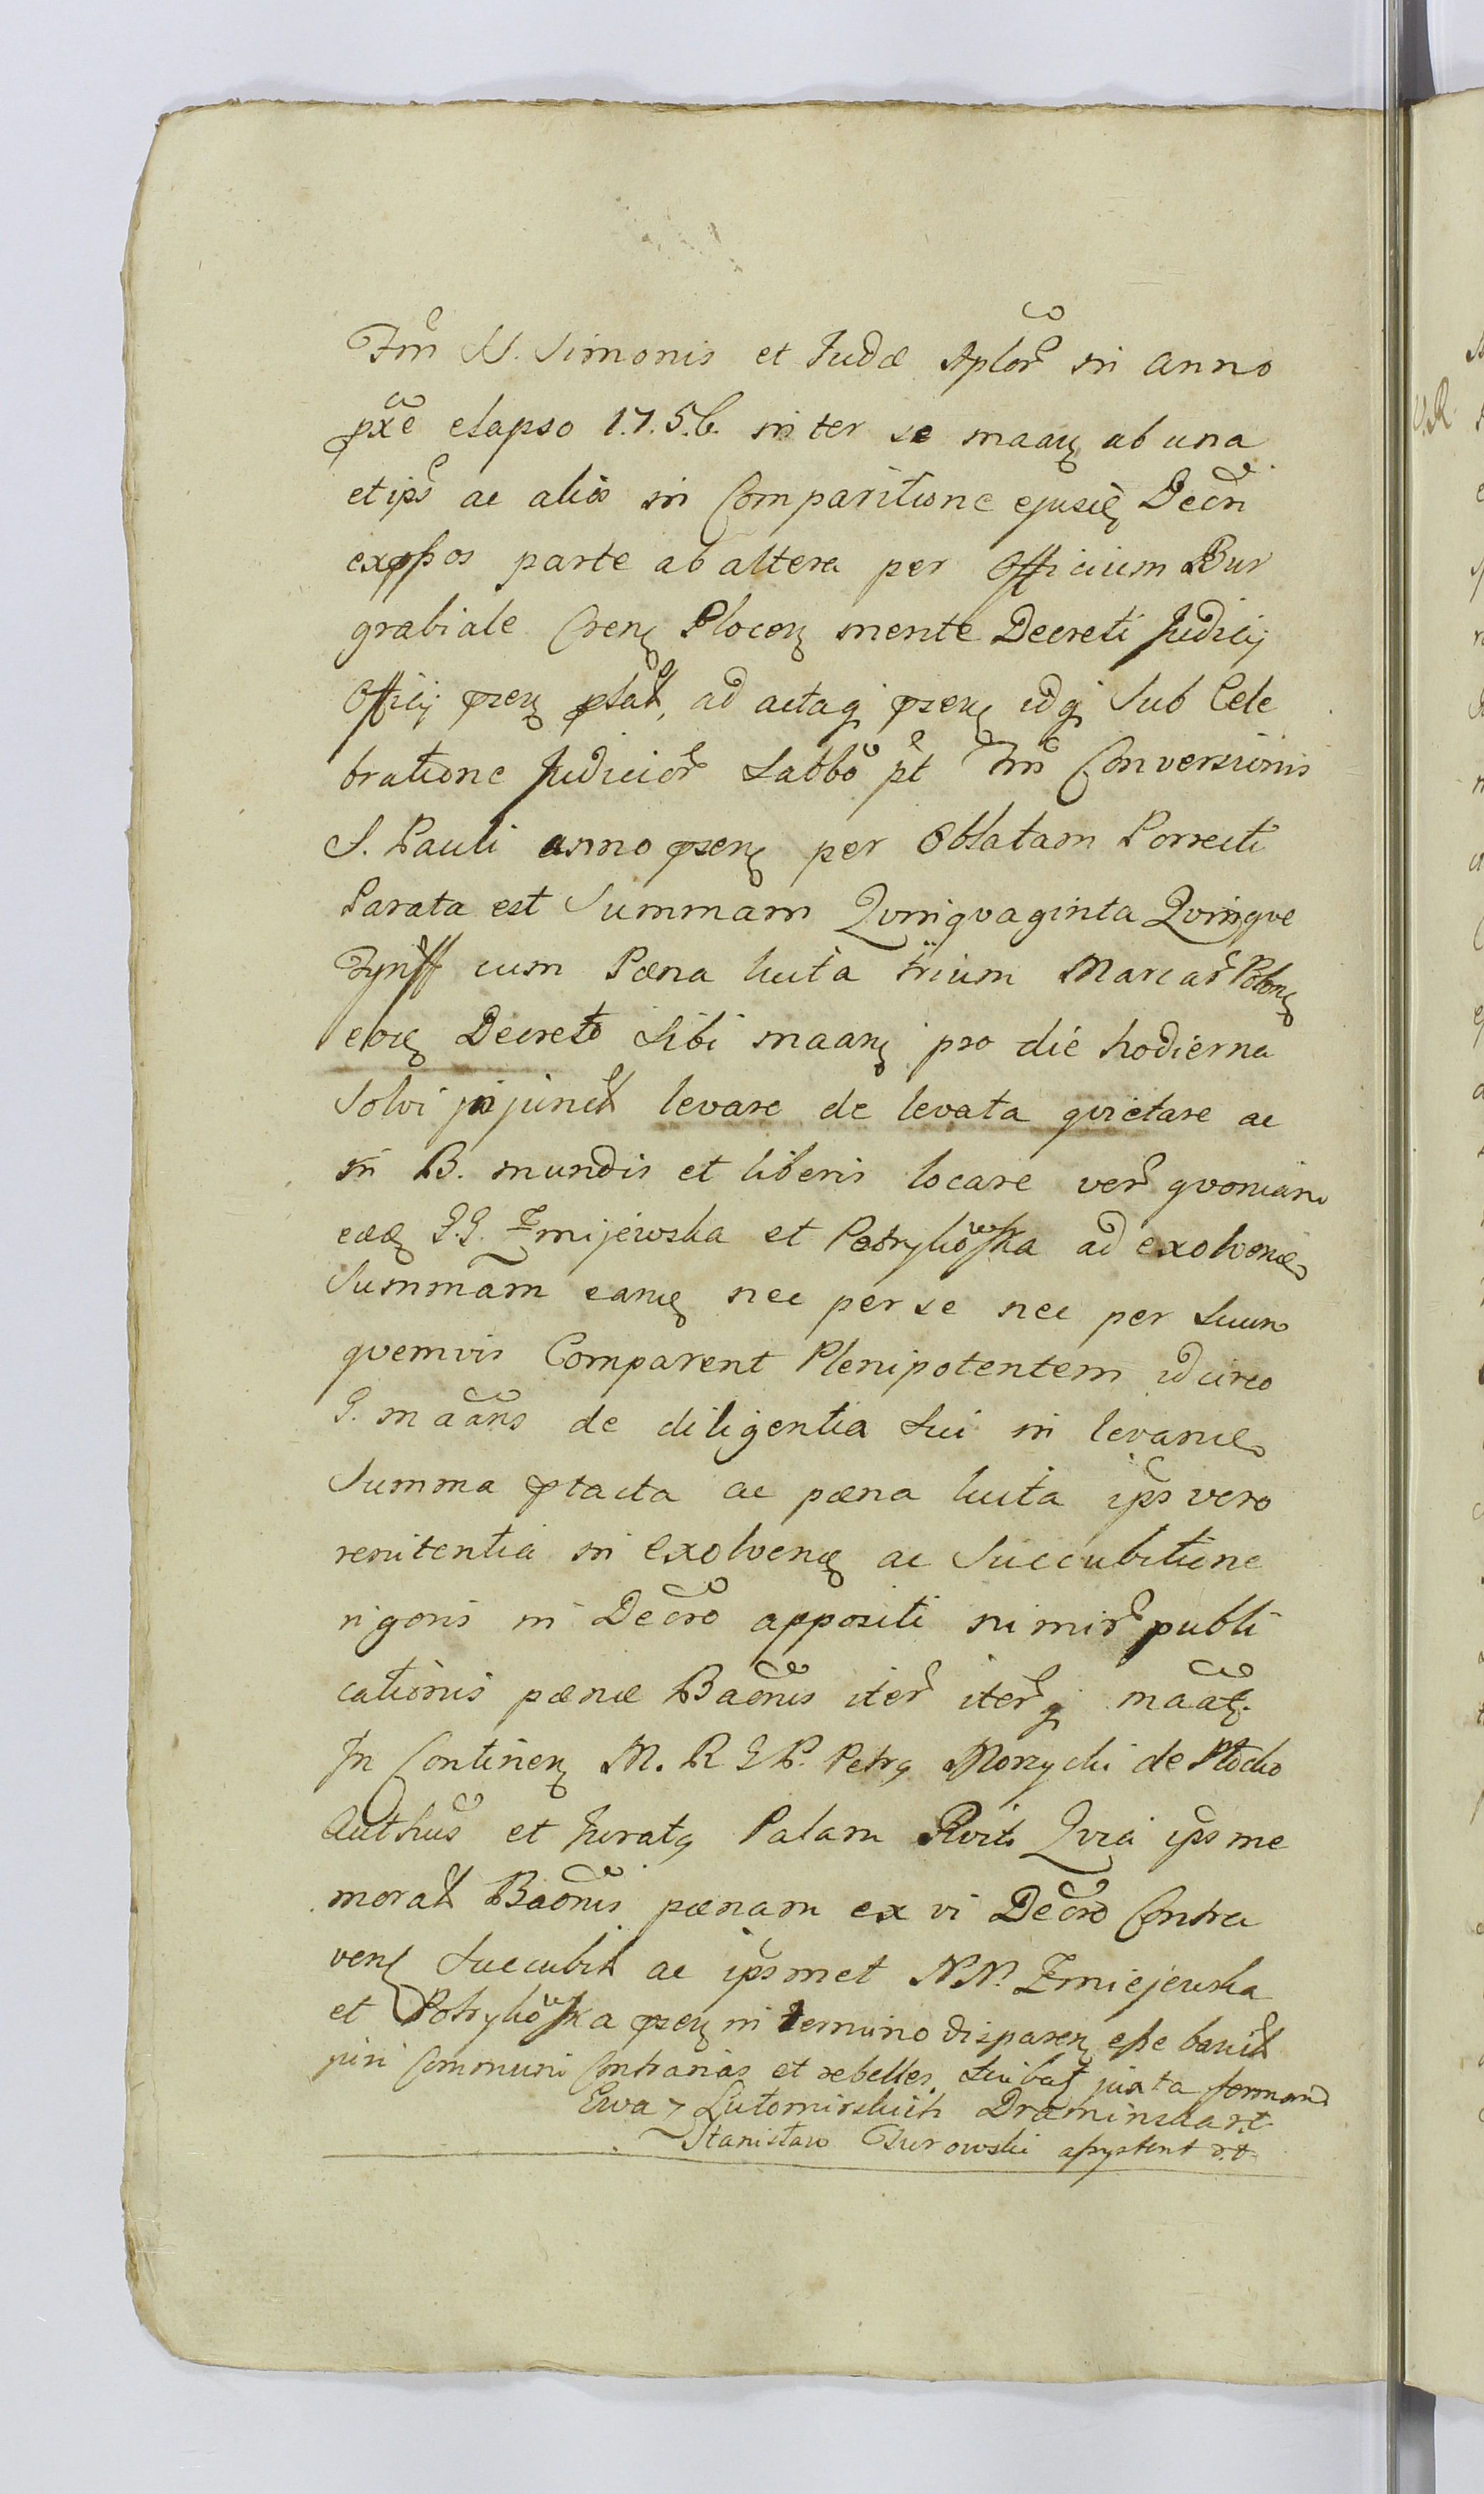 Fm̃ SS. Simonis et Judæ Aplor̃ in Anno
px̃e elapso 1.7.5.6. inter se maaņ ab una
et ip̃s ac alios in Comparitione ejusd Decri
expssos parte ab altera per Officium Bur
grabiale Cren Plocen mente Decreti Judicij
Officij psen ptat, ad actaq psen idq Sub Cele
bratione Judicior̃ Sabbo pt Fm̃ Conversionis
S. Pauli anno psen per Oblatam Porrecti
Parata est Summam Qvinqvaginta Qvinqve
Tynff cum Pæna luita trium Marcar̃ Polon
eod Decreto Sibi maan pro die hodierna
Solvi injunct levare de levata qvietare ac
in B. mundis et liberis locare ver̃ qvoniam
eæd G.G. Zmijewska et Petrykowska ad exolvend
Summam eand nec per se nec per Suum
qvemvis Comparent Plenipotentem idcirco
G. maãns de diligentia Sui in levand
Summa ptacta ac pæna luita ip̃s vero
renitentia in exolvend ac Succubitione
rigoris in Decr̃o appositi nimir̃ publi
cationis pænæ Baõnis iter̃ iter̃q maãt.
In Continen M. R G P. Petrq Morzycki de Plocko
Authus et Juratq Palam Rvit Qvia ip̃s me
morat Baõnis pænam ex vi Decr̃o Contra
ven Succubit ac ip̃smet NN. Zmiejewska
et Potrykowska psen in termino disparen esse banit
juri Communi Contrarias et rebelles Scibat juxta formam
Ewa z Lutomirskich Draminska r.t
Stanisław Gurowski assystent r.t